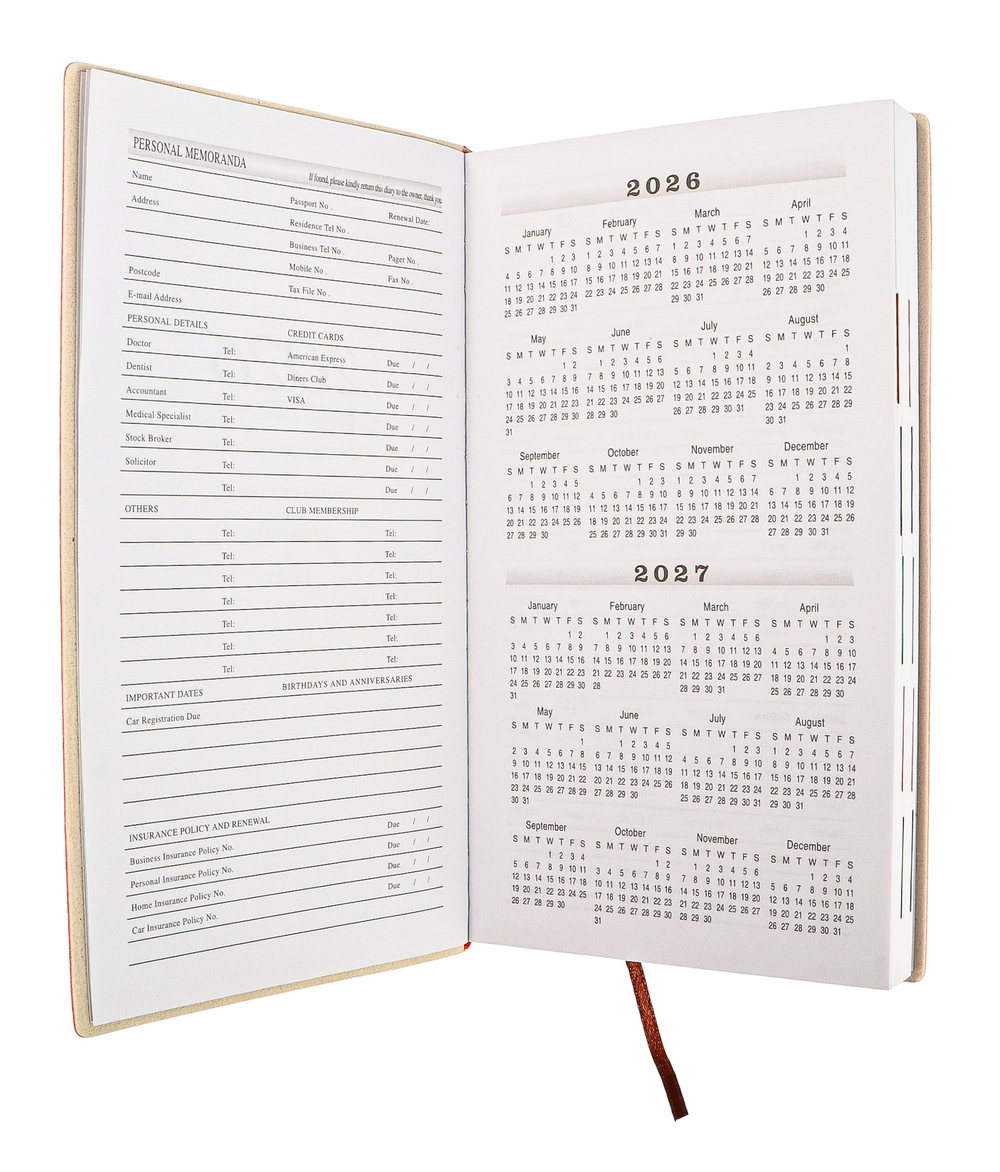 PERSONAL MEMORANDA
If found, please kindly return this diary to the owner, thank you
Name
Passport No .
Renewal Date:
Address
Residence Tel No .
Business Tel No .
Pager No .
Postcode
Mobile No .
Fax No .
E-mail Address
Tax File No .
PERSONAL DETAILS
CREDIT CARDS
Doctor Tel: American Express Due / /
Dentist Tel: Diners Club Due / /
Accountant Tel: VISA Due / /
Medical Specialist Tel: Due / /
Stock Broker Tel: Due / /
Solicitor Tel: Due / /
Tel: Due / /
OTHERS CLUB MEMBERSHIP
Tel: Tel:
Tel: Tel:
Tel: Tel:
Tel: Tel:
Tel: Tel:
Tel: Tel:
Tel: Tel:
IMPORTANT DATES BIRTHDAYS AND ANNIVERSARIES
Car Registration Due
INSURANCE POLICY AND RENEWAL
Business Insurance Policy No. Due / /
Personal Insurance Policy No. Due / /
Home Insurance Policy No. Due / /
Car Insurance Policy No. Due / /
2026
January February March April
S M T W T F S S M T W T F S S M T W T F S S M T W T F S
1 2 3 1 2 3 4 5 6 7 1 2 3 4 5 6 7 1 2 3 4
4 5 6 7 8 9 10 8 9 10 11 12 13 14 8 9 10 11 12 13 14 5 6 7 8 9 10 11
11 12 13 14 15 16 17 15 16 17 18 19 20 21 15 16 17 18 19 20 21 12 13 14 15 16 17 18
18 19 20 21 22 23 24 22 23 24 25 26 27 28 22 23 24 25 26 27 28 19 20 21 22 23 24 25
25 26 27 28 29 30 31 29 30 31 26 27 28 29 30
May June July August
S M T W T F S S M T W T F S S M T W T F S S M T W T F S
1 2 1 2 3 4 5 6 1 2 3 4 1
3 4 5 6 7 8 9 7 8 9 10 11 12 13 5 6 7 8 9 10 11 2 3 4 5 6 7 8
10 11 12 13 14 15 16 14 15 16 17 18 19 20 12 13 14 15 16 17 18 9 10 11 12 13 14 15
17 18 19 20 21 22 23 21 22 23 24 25 26 27 19 20 21 22 23 24 25 16 17 18 19 20 21 22
24 25 26 27 28 29 30 28 29 30 26 27 28 29 30 31 23 24 25 26 27 28 29
31 30 31
September October November December
S M T W T F S S M T W T F S S M T W T F S S M T W T F S
1 2 3 4 5 1 2 3 1 2 3 4 5 6 7 1 2 3 4 5
6 7 8 9 10 11 12 4 5 6 7 8 9 10 8 9 10 11 12 13 14 6 7 8 9 10 11 12
13 14 15 16 17 18 19 11 12 13 14 15 16 17 15 16 17 18 19 20 21 13 14 15 16 17 18 19
20 21 22 23 24 25 26 18 19 20 21 22 23 24 22 23 24 25 26 27 28 20 21 22 23 24 25 26
27 28 29 30 25 26 27 28 29 30 31 29 30 27 28 29 30 31
2027
January February March April
S M T W T F S S M T W T F S S M T W T F S S M T W T F S
1 2 1 2 3 4 5 6 1 2 3 4 5 6 1 2 3
3 4 5 6 7 8 9 7 8 9 10 11 12 13 7 8 9 10 11 12 13 4 5 6 7 8 9 10
10 11 12 13 14 15 16 14 15 16 17 18 19 20 14 15 16 17 18 19 20 11 12 13 14 15 16 17
17 18 19 20 21 22 23 21 22 23 24 25 26 27 21 22 23 24 25 26 27 18 19 20 21 22 23 24
24 25 26 27 28 29 30 28 28 29 30 31 25 26 27 28 29 30
31
May June July August
S M T W T F S S M T W T F S S M T W T F S S M T W T F S
1 1 2 3 4 5 1 2 3 1 2 3 4 5 6 7
2 3 4 5 6 7 8 6 7 8 9 10 11 12 4 5 6 7 8 9 10 8 9 10 11 12 13 14
9 10 11 12 13 14 15 13 14 15 16 17 18 19 11 12 13 14 15 16 17 15 16 17 18 19 20 21
16 17 18 19 20 21 22 20 21 22 23 24 25 26 18 19 20 21 22 23 24 22 23 24 25 26 27 28
23 24 25 26 27 28 29 27 28 29 30 25 26 27 28 29 30 31 29 30 31
30 31
September October November December
S M T W T F S S M T W T F S S M T W T F S S M T W T F S
1 2 3 4 1 2 1 2 3 4 5 6 1 2 3 4
5 6 7 8 9 10 11 3 4 5 6 7 8 9 7 8 9 10 11 12 13 5 6 7 8 9 10 11
12 13 14 15 16 17 18 10 11 12 13 14 15 16 14 15 16 17 18 19 20 12 13 14 15 16 17 18
19 20 21 22 23 24 25 17 18 19 20 21 22 23 21 22 23 24 25 26 27 19 20 21 22 23 24 25
26 27 28 29 30 24 25 26 27 28 29 30 28 29 30 26 27 28 29 30 31
31